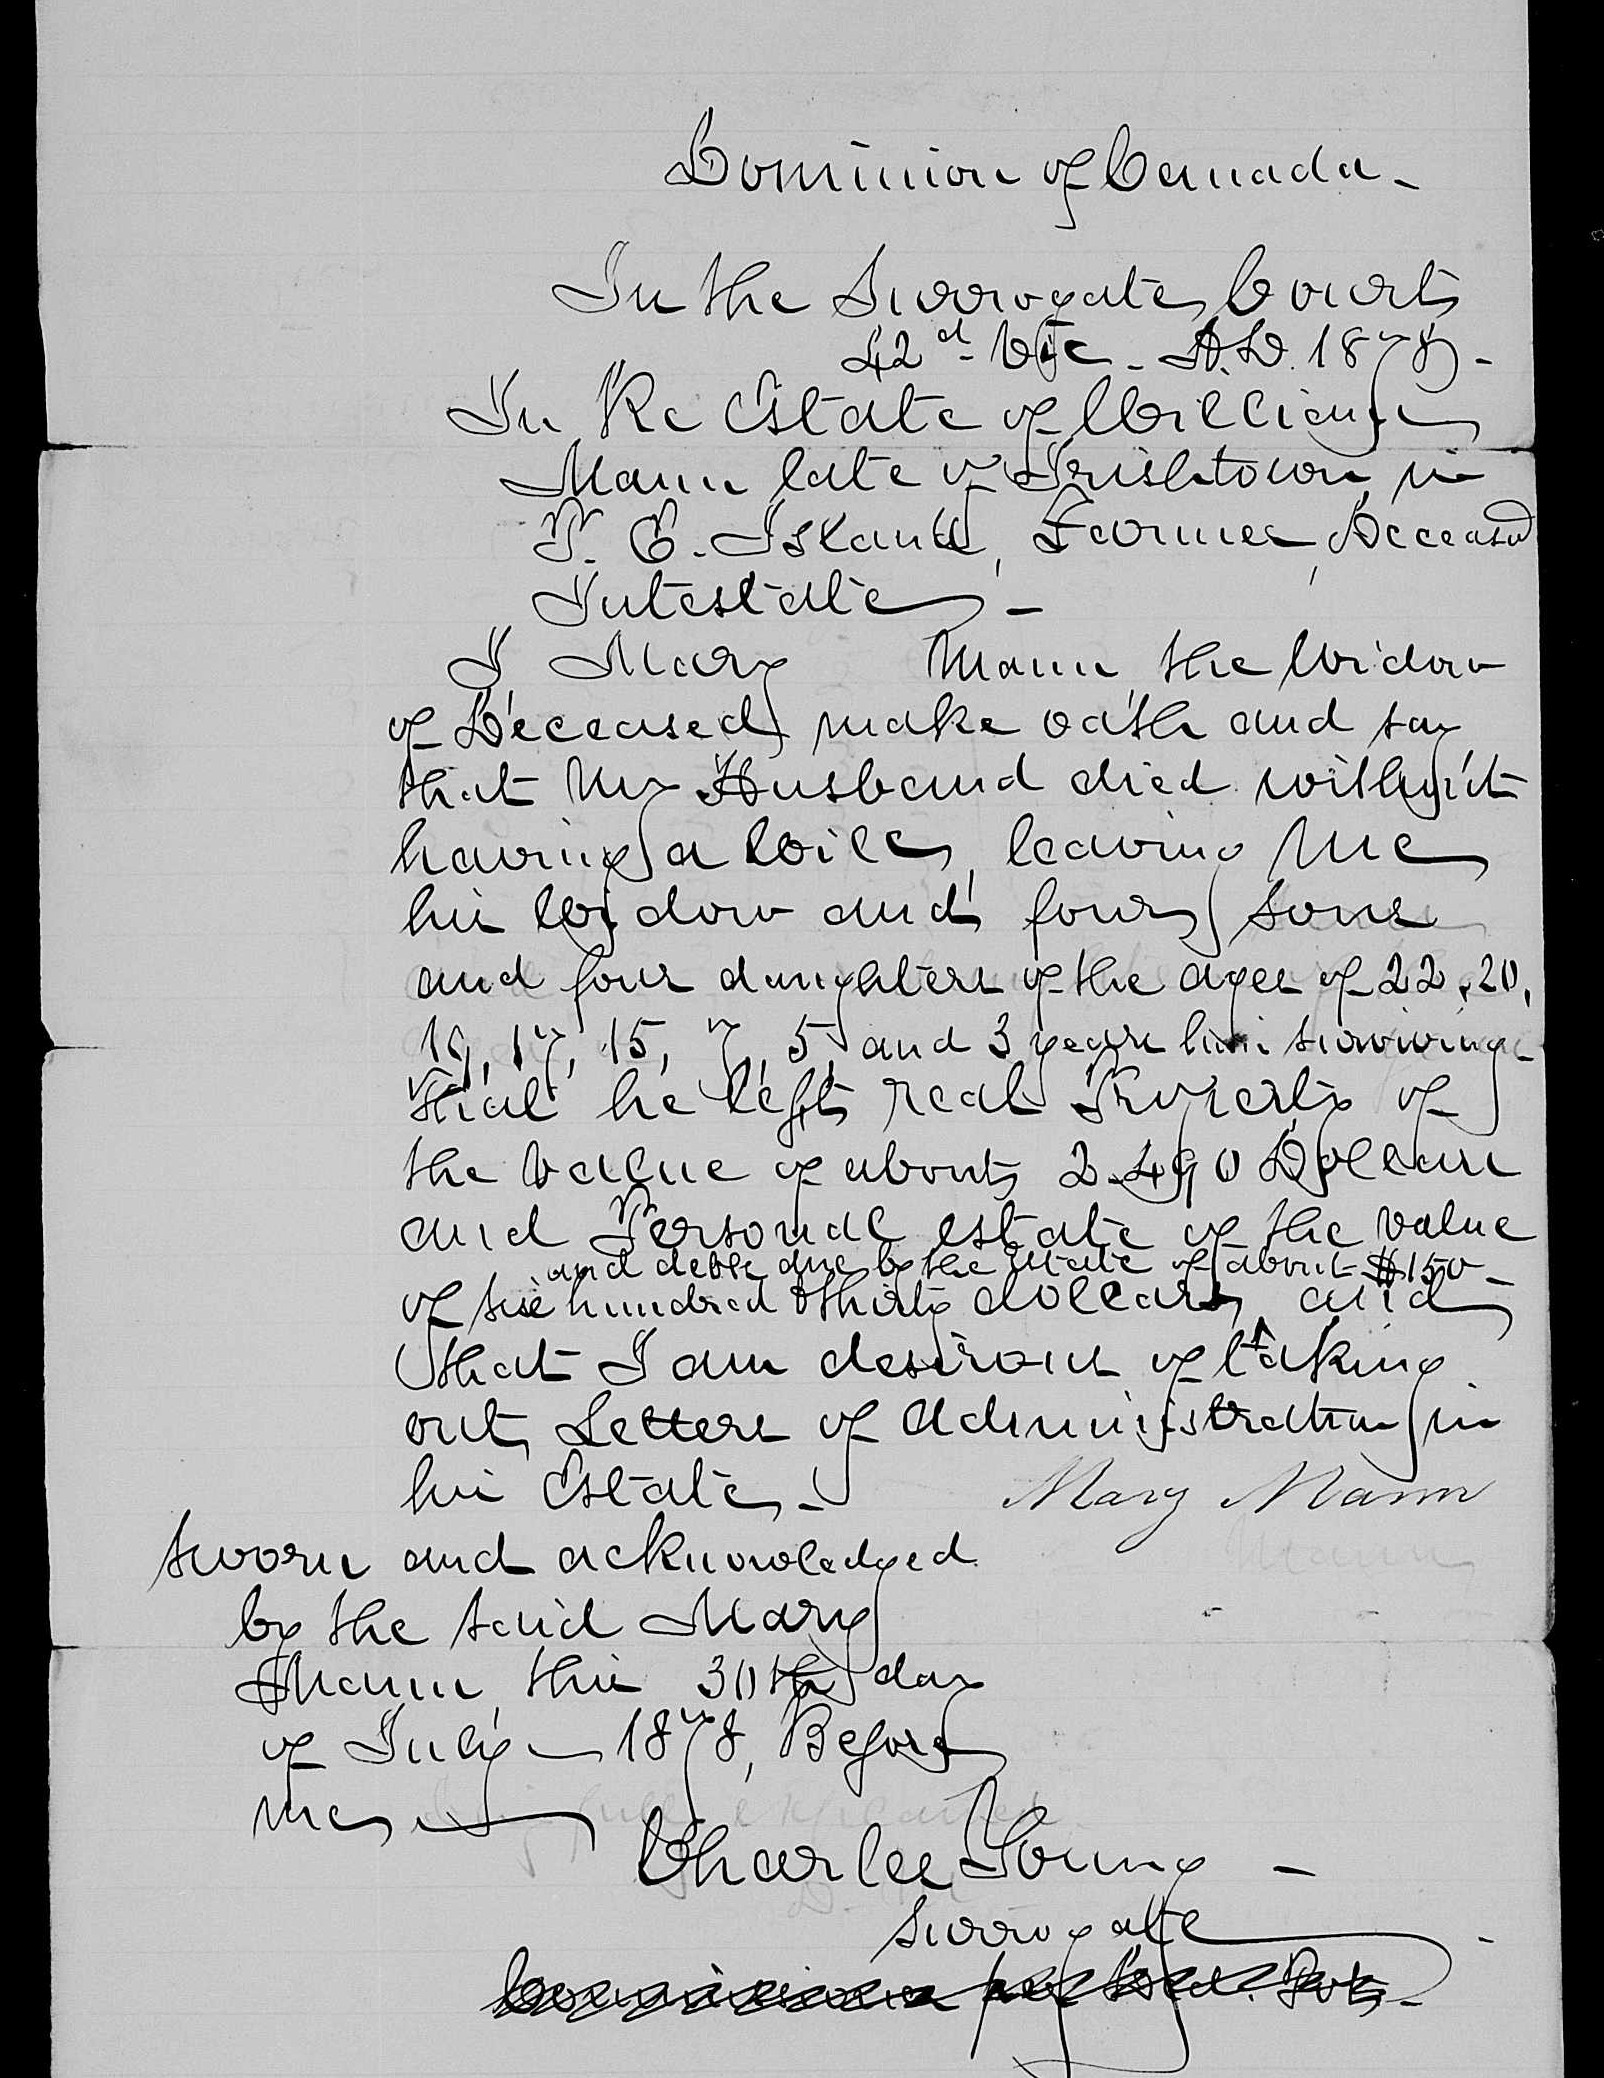 Dominion of Canada -
In the Surrogate Court
42d Vic - A.D. 1878 -
In Re Estate of William
Mann late of Irishtown in
P. E. Island, Farmer, Deceased
Intestate -
I Mary Mann, the Widow
of Deceased make oath and say
that My Husband died without
having a Will, leaving Me
his Widow and four sons
and four daughters of the ages of 22, 20,
19, 17, 15, 7, 5, and 3 years him surviving -
that he left real Property of
the value of about 2490 Dollars
and Personal estate of the value
and debts due by the Estate of about $150 -
of six hundred & thirty dollars, and
that I am desirous of taking
out Letters of Administration in
his Estate -
Mary Mann
Sworn and acknowledged
by the said Mary
Mann, this 30th day
of July 1878, Before
me
Charles Young -
Surrogate